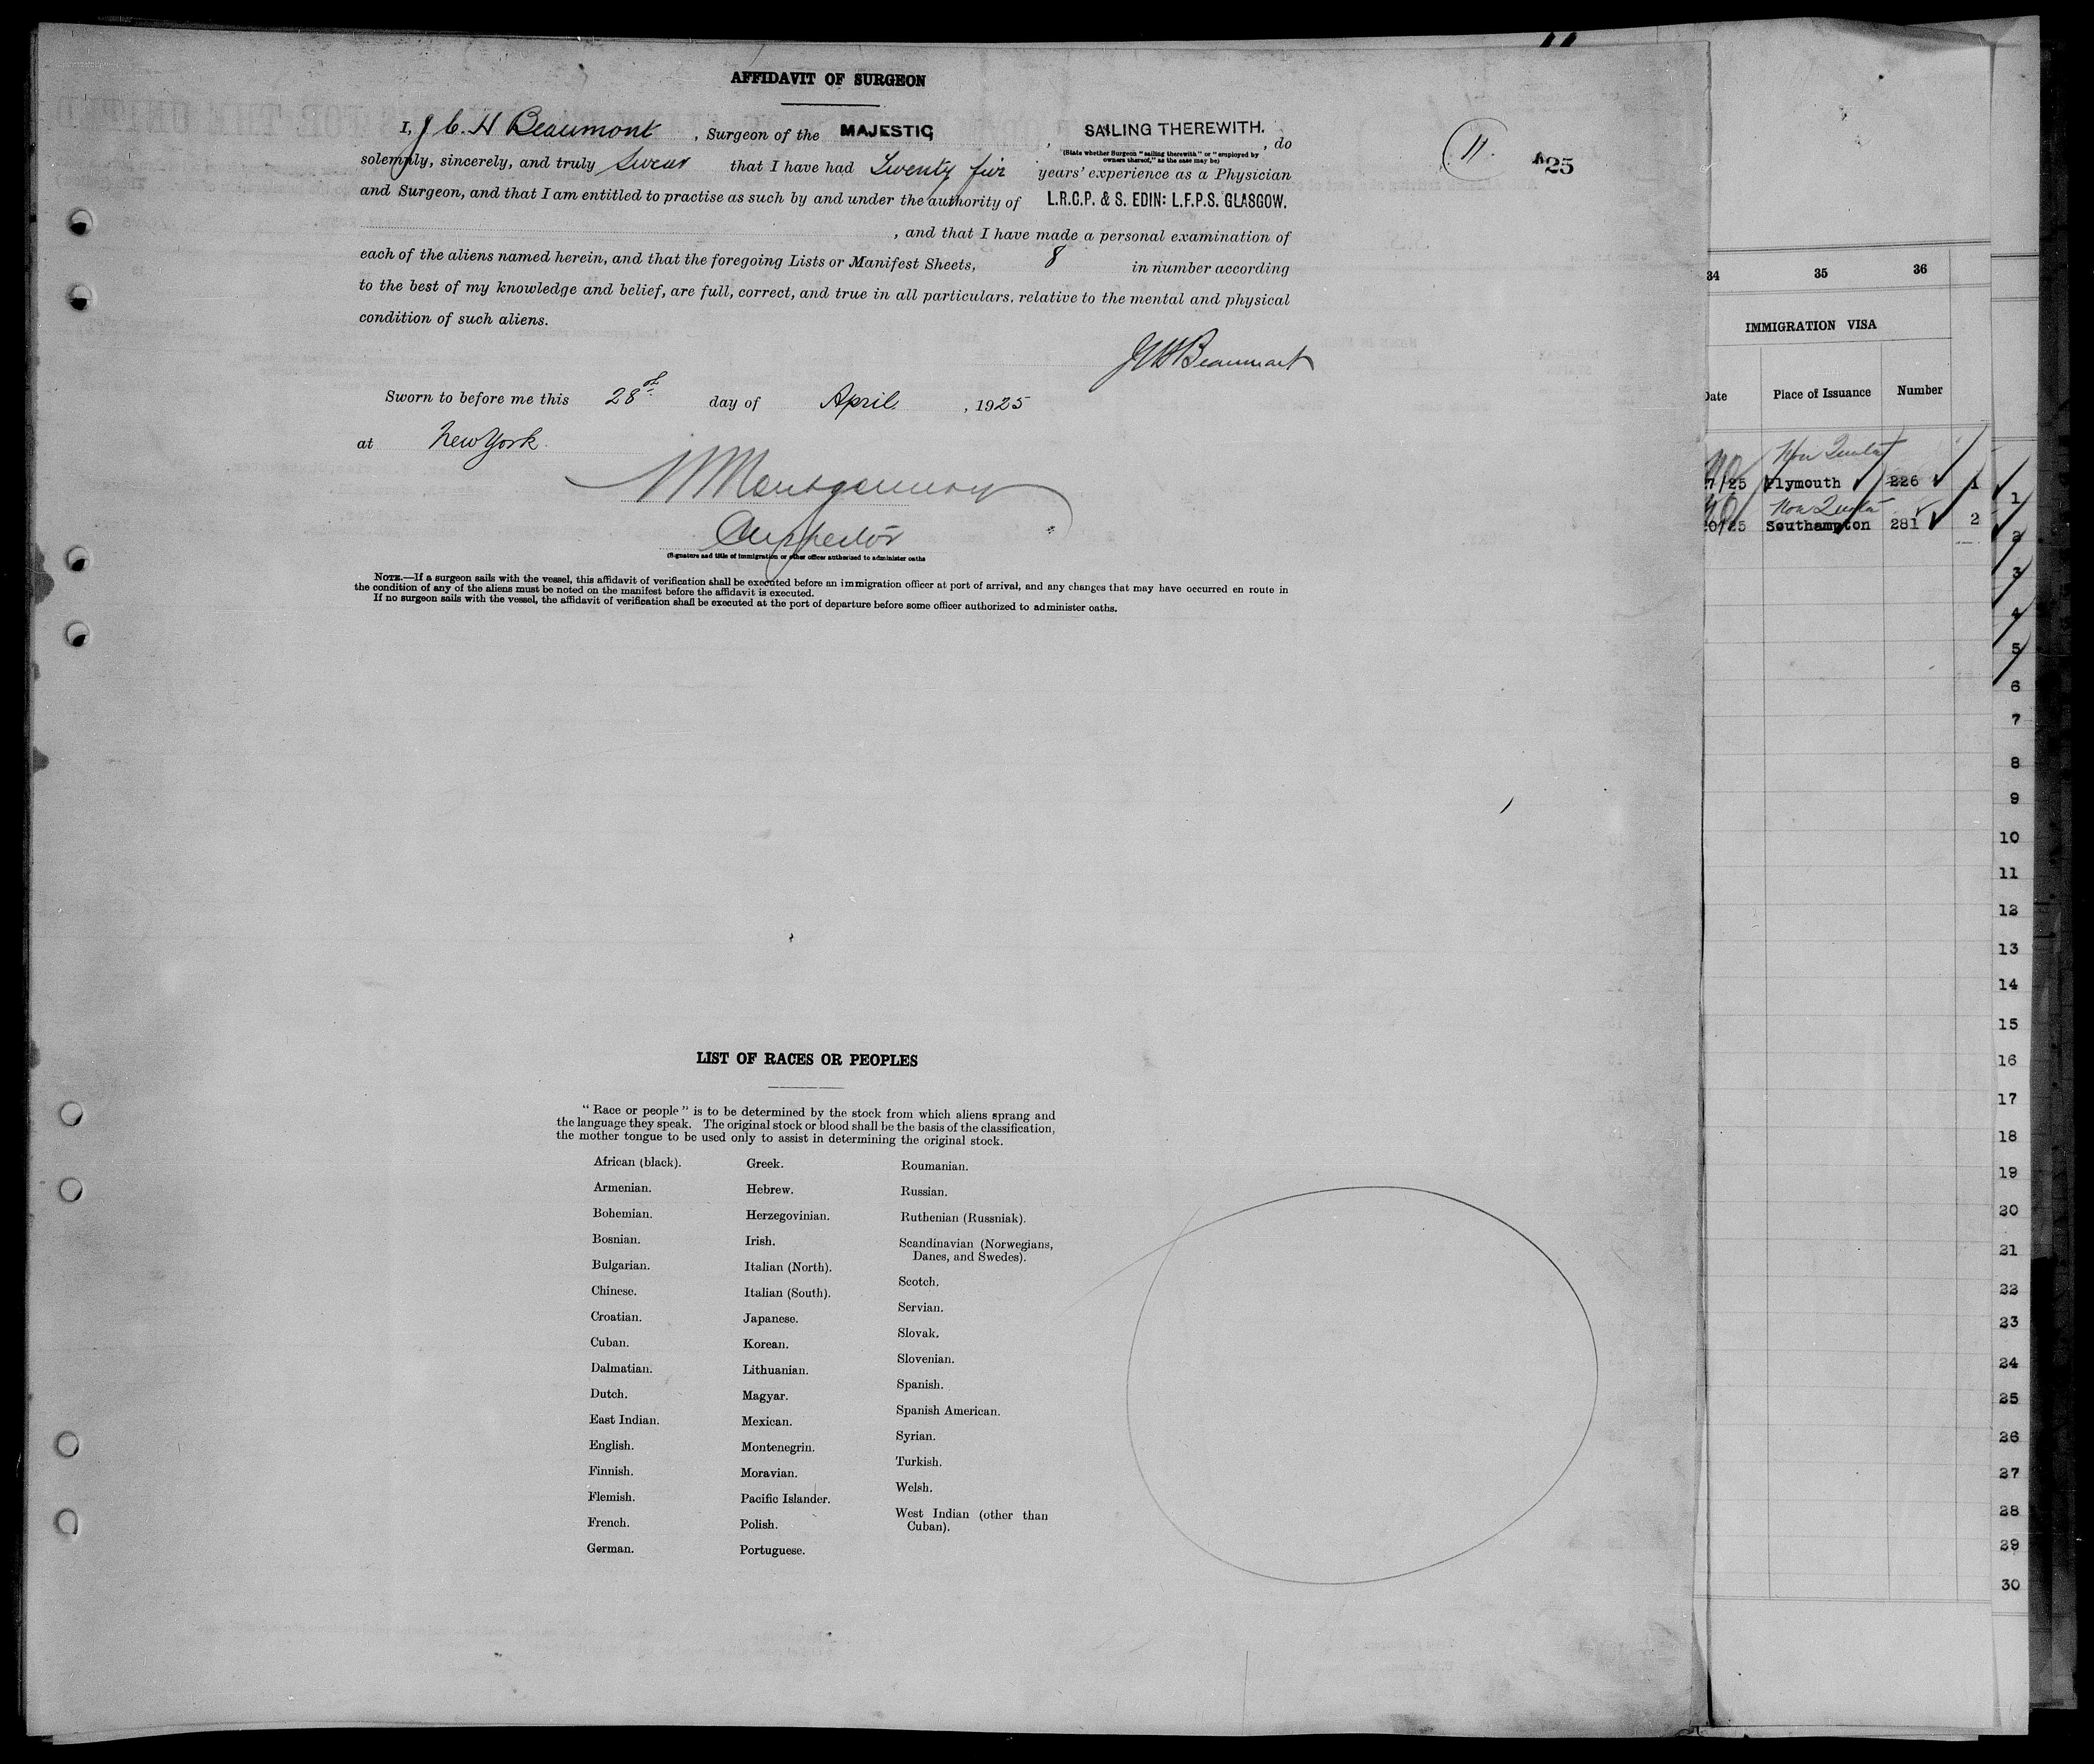 AFFIDAVIT OF SURGEON
I, J C. H Beaumont, Surgeon of the MAJESTIC, SAILING THEREWITH., do
(State whether Surgeon "sailing therewith" or "employed by owners thereof," as the case may be)
solemnly, sincerely, and truly Swear that I have had Twenty five years' experience as a Physician
and Surgeon, and that I am entitled to practise as such by and under the authority of L.R.C.P. & S. EDIN: L.F.P.S. GLASGOW.
, and that I have made a personal examination of
each of the aliens named herein, and that the foregoing Lists or Manifest Sheets, 8 in number according
to the best of my knowledge and belief, are full, correct, and true in all particulars, relative to the mental and physical
condition of such aliens.
11.
25
JCHBeaumont
Sworn to before me this 28th day of April, 1925
at New York.
Montgomery
Inspector
(Signature and title of immigration or other officer authorized to administer oaths
NOTE.—If a surgeon sails with the vessel, this affidavit of verification shall be executed before an immigration officer at port of arrival, and any changes that may have occurred en route in
the condition of any of the aliens must be noted on the manifest before the affidavit is executed.
If no surgeon sails with the vessel, the affidavit of verification shall be executed at the port of departure before some officer authorized to administer oaths.
LIST OF RACES OR PEOPLES
"Race or people" is to be determined by the stock from which aliens sprang and
the language they speak. The original stock or blood shall be the basis of the classification,
the mother tongue to be used only to assist in determining the original stock.
African (black).
Armenian.
Bohemian.
Bosnian.
Bulgarian.
Chinese.
Croatian.
Cuban.
Dalmatian.
Dutch.
East Indian.
English.
Finnish.
Flemish.
French.
German.
Greek.
Hebrew.
Herzegovinian.
Irish.
Italian (North).
Italian (South).
Japanese.
Korean.
Lithuanian.
Magyar.
Mexican.
Montenegrin.
Moravian.
Pacific Islander.
Polish.
Portuguese.
Roumanian.
Russian.
Ruthenian (Russniak).
Scandinavian (Norwegians,
Danes, and Swedes).
Scotch.
Servian.
Slovak.
Slovenian.
Spanish.
Spanish American.
Syrian.
Turkish.
Welsh.
West Indian (other than
Cuban).
34 35 36
IMMIGRATION VISA
Date Place of Issuance Number
Non Quota
7/25 Plymouth 226 1
Non Quota
0/25 Southampton 281 2
1
2
3
4
5
6
7
8
9
10
11
12
13
14
15
16
17
18
19
20
21
22
23
24
25
26
27
28
29
30